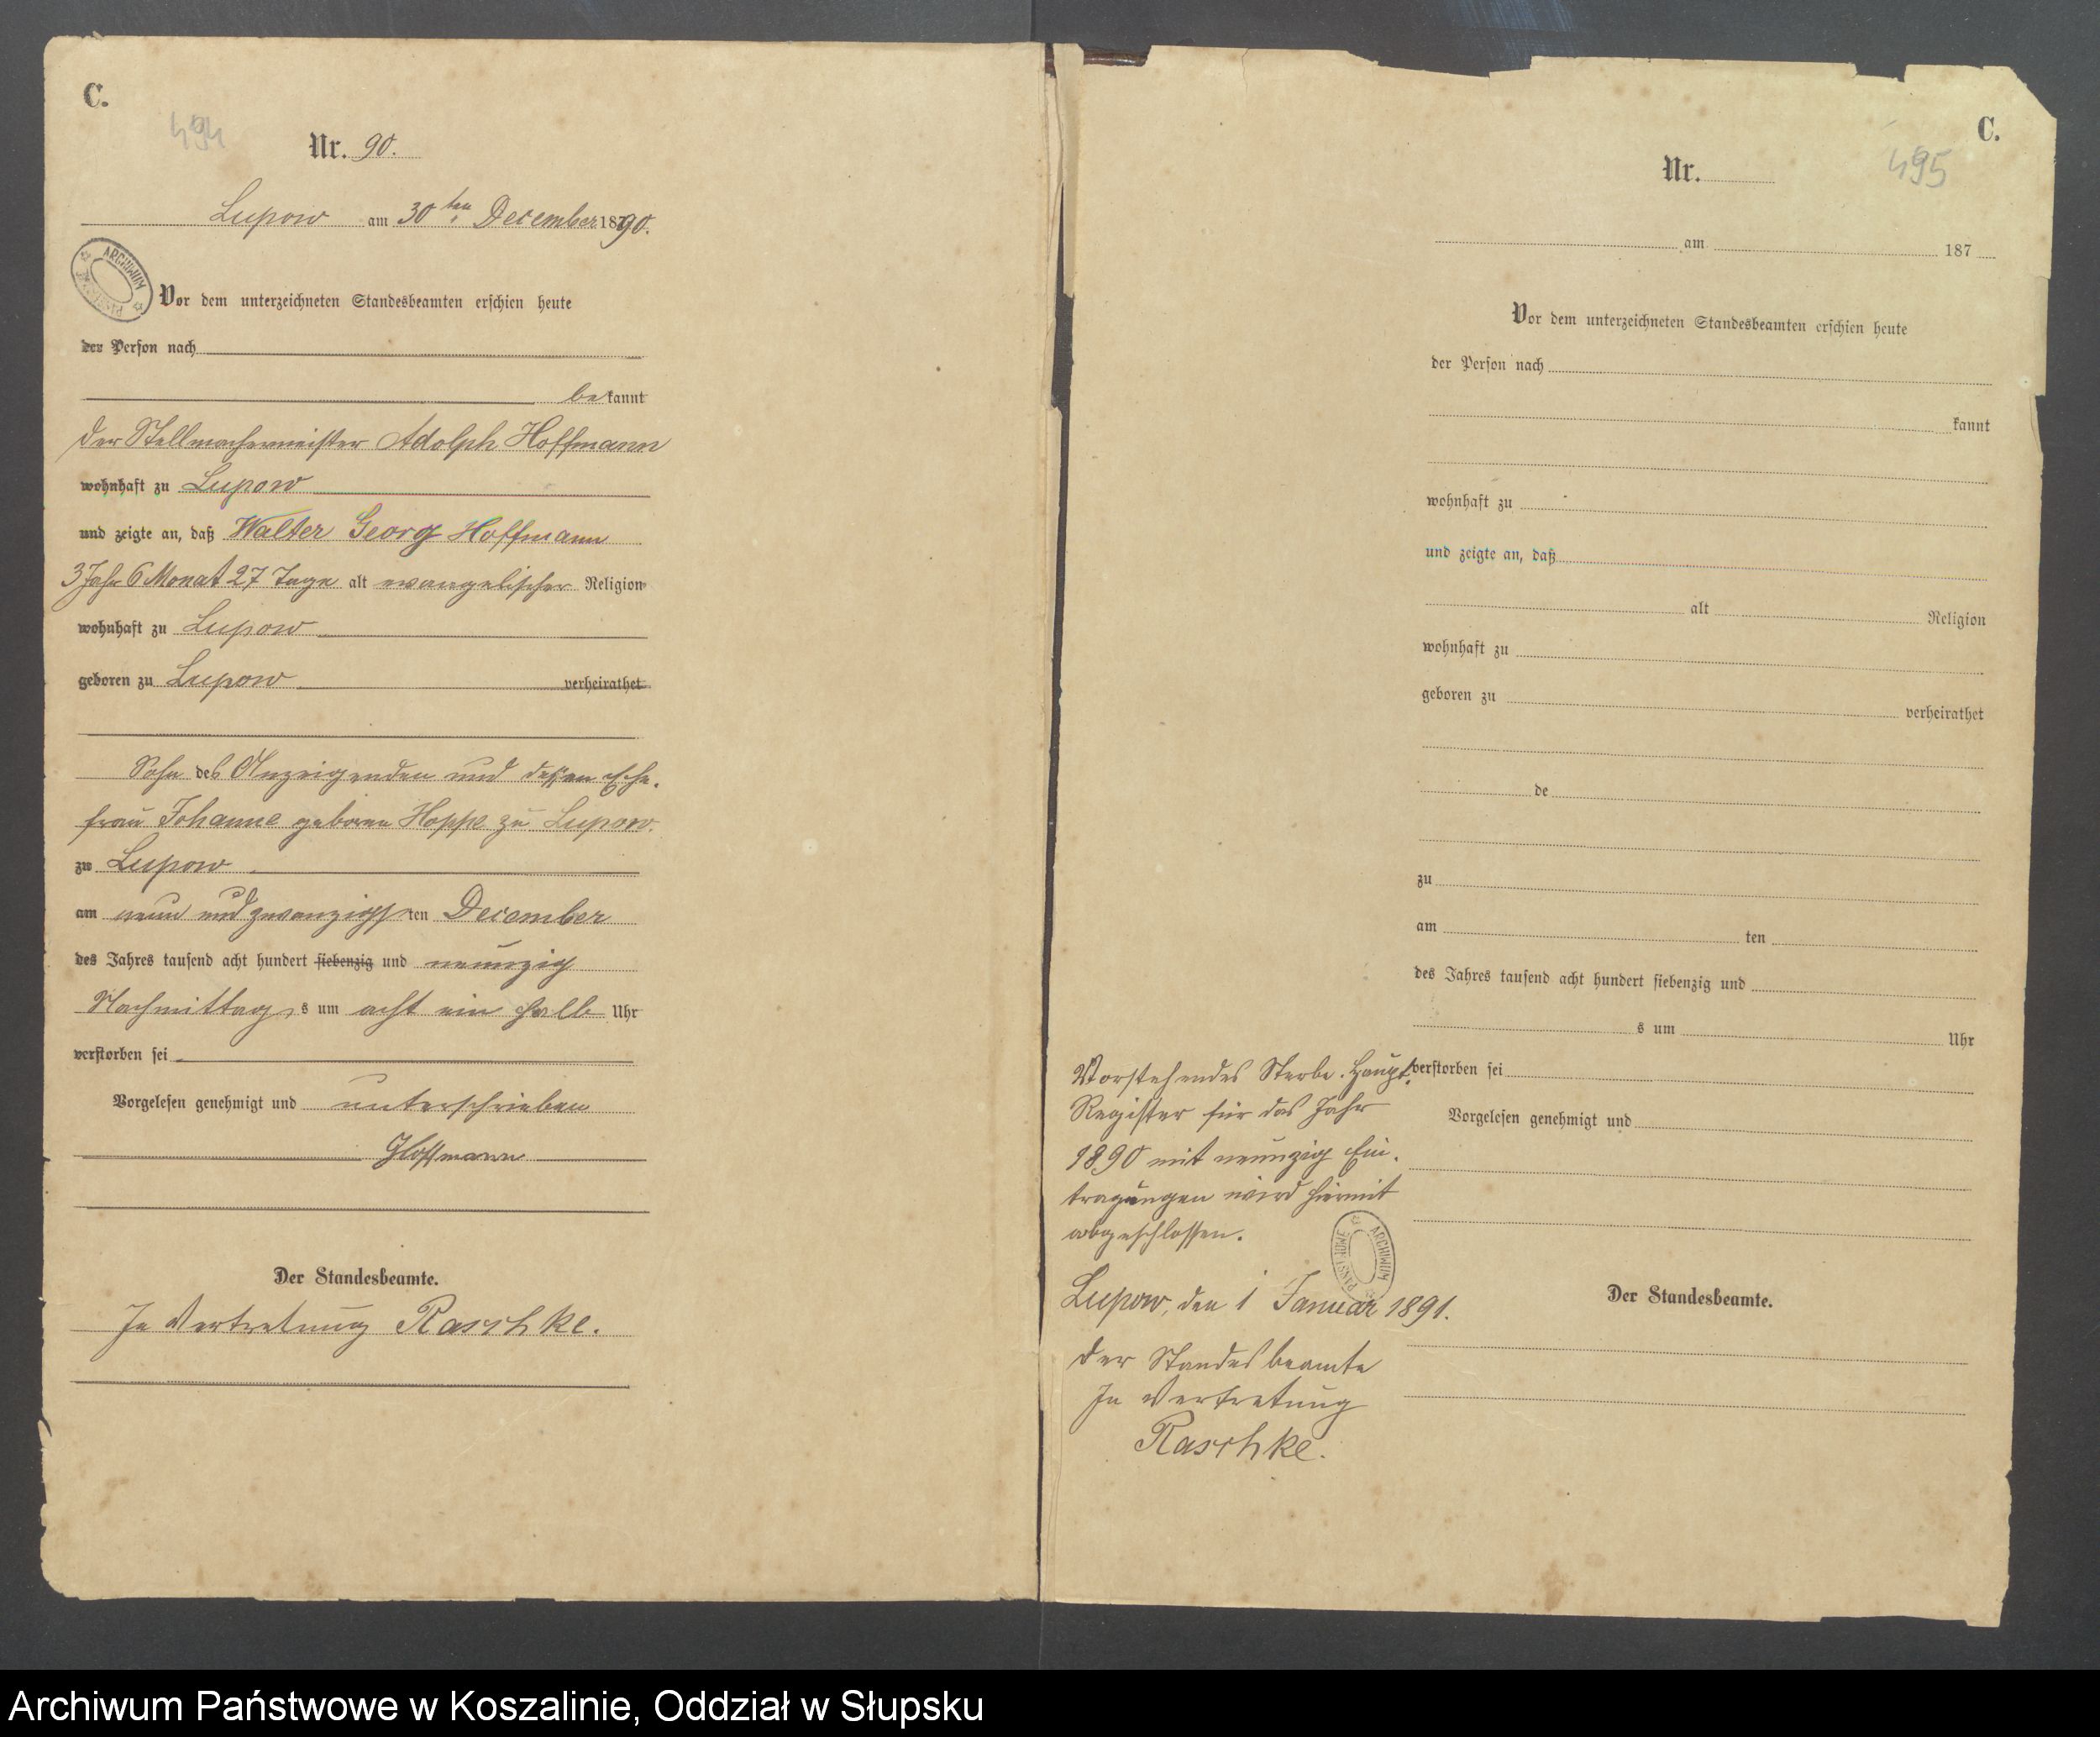 C.
494
Nr. 90.
Lupow am 30ten December 1890.
ARCHIWUM PAŃSTWOWE
Vor dem unterzeichneten Standesbeamten erschien heute
der Person nach
bekannt
der Stellmachermeister Adolph Hoffmann
wohnhaft zu Lupow
und zeigte an, daß Walter Georg Hoffmann
3 Jahr 6 Monat 27 Tage alt evangelischer Religion
wohnhaft zu Lupow
geboren zu Lupow verheirathet
Sohn des Anzeigenden und dessen Ehe-
frau Johanne geboren Hoppe zu Lupow.
zu Lupow
am neun und zwanzigsten December
des Jahres tausend acht hundert siebenzig und neunzig
Nachmittags um acht ein halb Uhr
verstorben sei
Vorgelesen genehmigt und unterschrieben
Hoffmann
Der Standesbeamte.
In Vertretung Raschke.
C.
495
Nr.
am 187
Vor dem unterzeichneten Standesbeamten erschien heute
der Person nach
kannt
wohnhaft zu
und zeigte an, daß
alt Religion
wohnhaft zu
geboren zu verheirathet
de
zu
am ten
des Jahres tausend acht hundert siebenzig und
s um Uhr
verstorben sei
Vorgelesen genehmigt und
Der Standesbeamte.
Vorstehendes Sterbe-Haupt-
Register für das Jahr
1890 mit neunzig Ein-
tragungen wird hiermit
abgeschlossen.
ARCHIWUM PAŃSTWOWE
Lupow, den 1 Januar 1891.
Der Standesbeamte
In Vertretung
Raschke.
Archiwum Państwowe w Koszalinie, Oddział w Słupsku